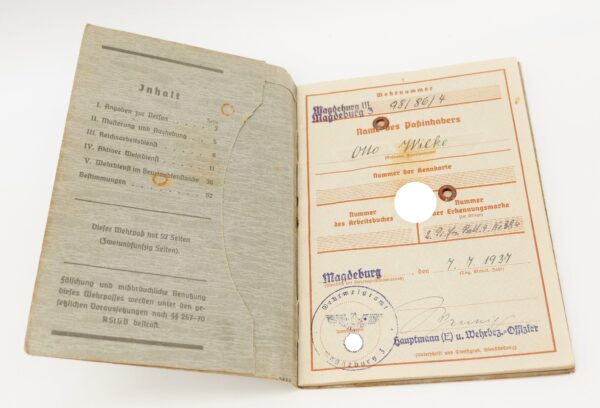 Inhalt
Seite
I. Angaben zur Person 3
II. Musterung und Aushebung 5
III. Reichsarbeitsdienst 8
IV. Aktiver Wehrdienst 11
V. Wehrdienst im Beurlaubtenstande 36
Bestimmungen 52
Dieser Wehrpaß hat 52 Seiten
(Zweiundfünfzig Seiten).
Fälschung und mißbräuchliche Benutzung
dieses Wehrpasses werden unter den ge-
setzlichen Voraussetzungen nach §§ 267-70
RStGB bestraft.
Wehrnummer
Magdeburg III
Magdeburg 3 98/86/4
Name des Paßinhabers
Otto Wilke
Nummer der Kennkarte
Nummer
des Arbeitsbuches
Nummer
der Erkennungsmarke
Magdeburg, den 7. 7. 1937
(Tag, Monat, Jahr)
Wehrmeldeamt
Magdeburg 3
Hauptmann (E) u. Wehrbez.-Offizier
(Unterschrift und Dienstgrad, Dienststellung)